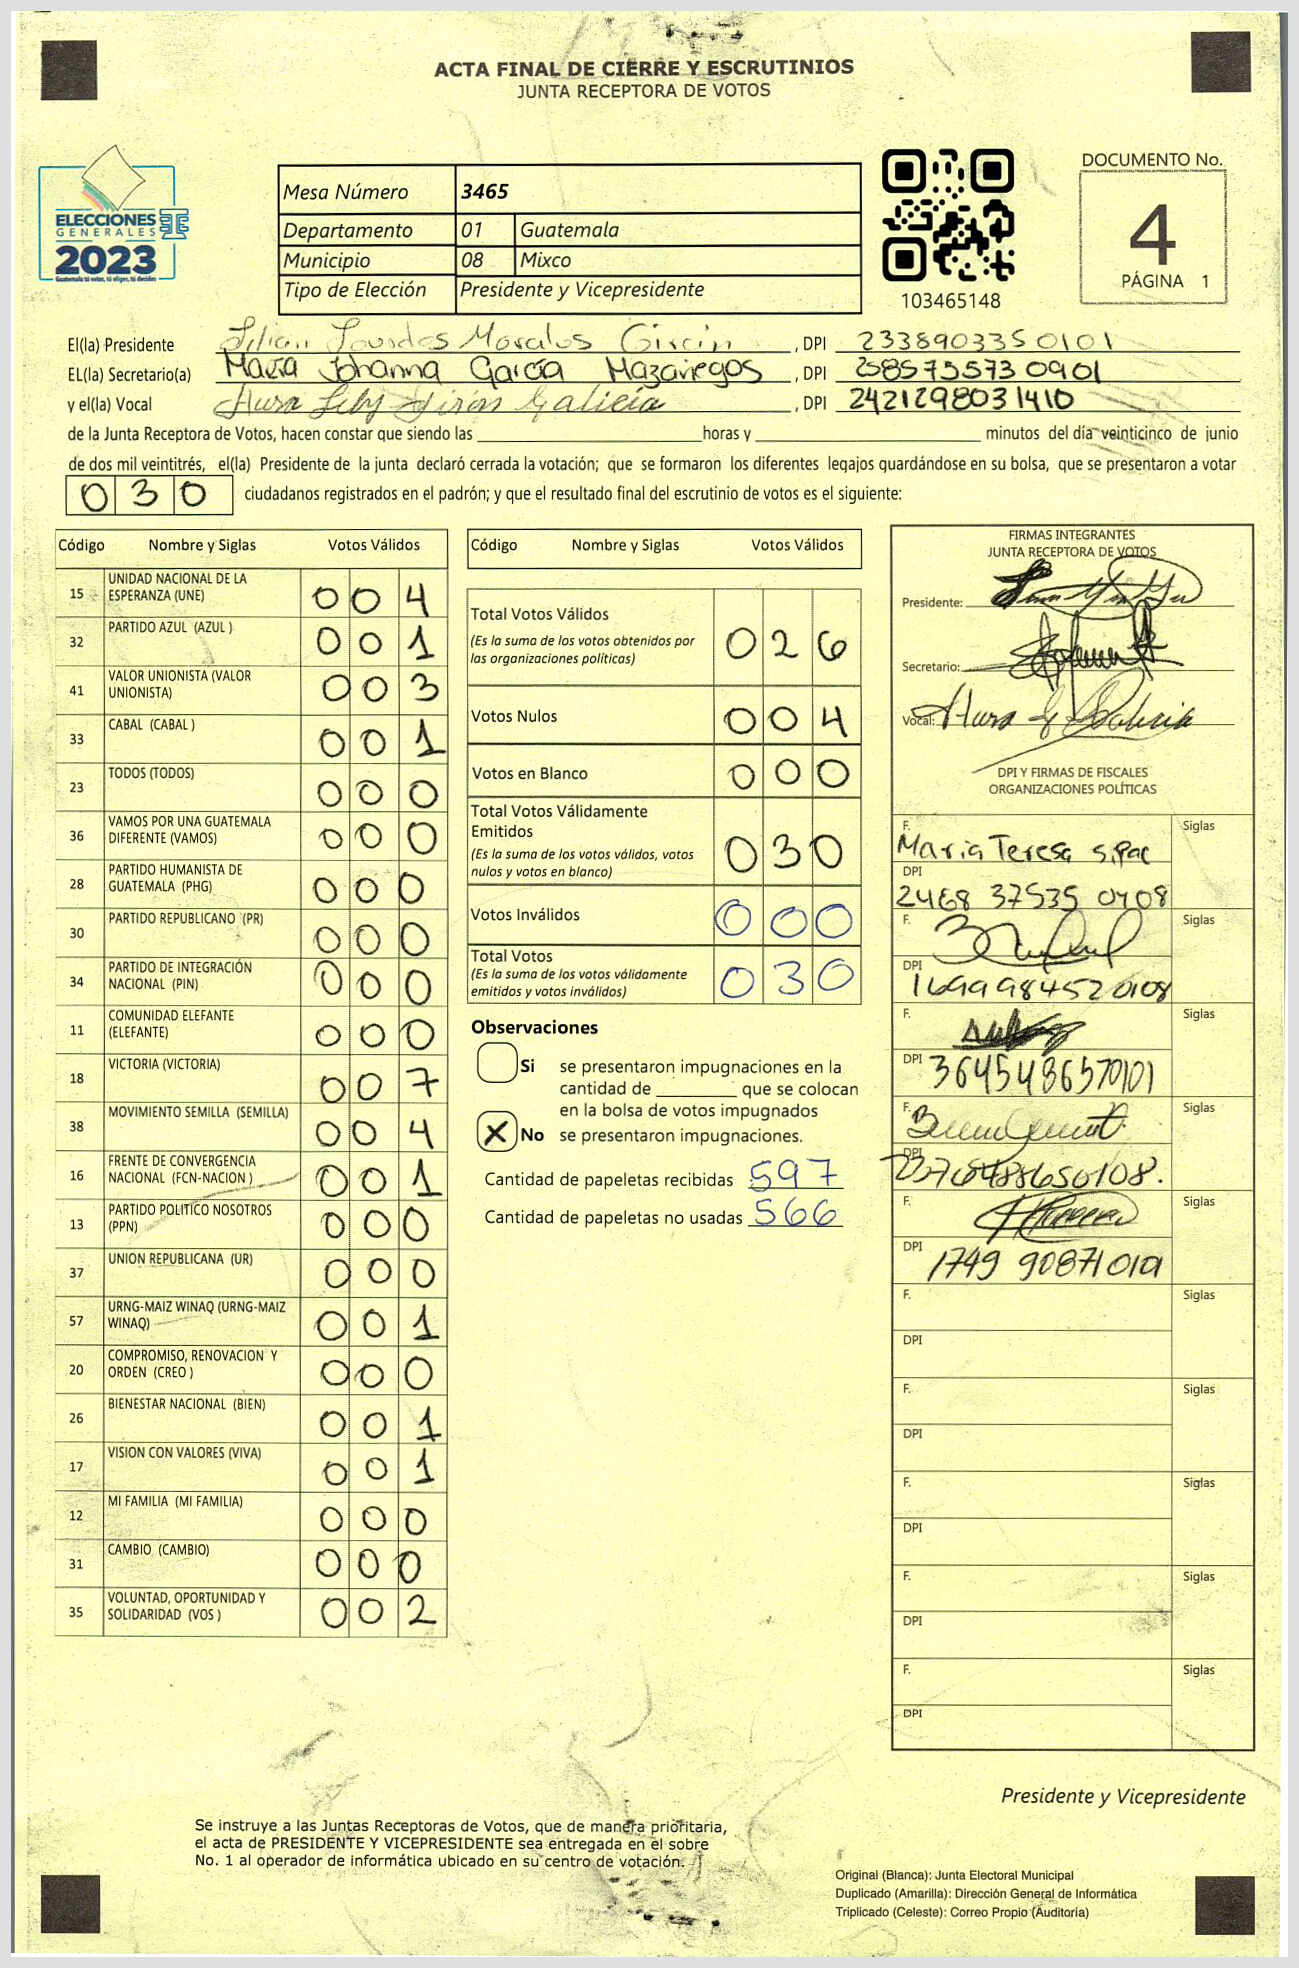 ACTA FINAL DE CIERRE Y ESCRUTINIOS
JUNTA RECEPTORA DE VOTOS
ELECCIONES
GENERALES
2023
Guatemala tú votas, tú eliges, tú decides
Mesa Número 3465
Departamento 01 Guatemala
Municipio 08 Mixco
Tipo de Elección Presidente y Vicepresidente
103465148
DOCUMENTO No.
4
PÁGINA 1
El(la) Presidente Lilian Lourdes Morales Girón, DPI 2338903350101
EL(la) Secretario(a) María Johanna García Mazariegos, DPI 2585755730901
y el(la) Vocal Galicia, DPI 2421298031410
de la Junta Receptora de Votos, hacen constar que siendo las horas y minutos del día veinticinco de junio
de dos mil veintitrés, el(la) Presidente de la junta declaró cerrada la votación; que se formaron los diferentes legajos quardándose en su bolsa, que se presentaron a votar
030 ciudadanos registrados en el padrón; y que el resultado final del escrutinio de votos es el siguiente:
Código Nombre y Siglas Votos Válidos
15 UNIDAD NACIONAL DE LA ESPERANZA (UNE) 004
32 PARTIDO AZUL (AZUL ) 001
41 VALOR UNIONISTA (VALOR UNIONISTA) 003
33 CABAL (CABAL ) 001
23 TODOS (TODOS) 000
36 VAMOS POR UNA GUATEMALA DIFERENTE (VAMOS) 000
28 PARTIDO HUMANISTA DE GUATEMALA (PHG) 000
30 PARTIDO REPUBLICANO (PR) 000
34 PARTIDO DE INTEGRACIÓN NACIONAL (PIN) 000
11 COMUNIDAD ELEFANTE (ELEFANTE) 000
18 VICTORIA (VICTORIA) 007
38 MOVIMIENTO SEMILLA (SEMILLA) 004
16 FRENTE DE CONVERGENCIA NACIONAL (FCN-NACION ) 001
13 PARTIDO POLITICO NOSOTROS (PPN) 000
37 UNION REPUBLICANA (UR) 000
57 URNG-MAIZ WINAQ (URNG-MAIZ WINAQ) 001
20 COMPROMISO, RENOVACION Y ORDEN (CREO ) 000
26 BIENESTAR NACIONAL (BIEN) 001
17 VISION CON VALORES (VIVA) 001
12 MI FAMILIA (MI FAMILIA) 000
31 CAMBIO (CAMBIO) 000
35 VOLUNTAD, OPORTUNIDAD Y SOLIDARIDAD (VOS ) 002
Código Nombre y Siglas Votos Válidos
Total Votos Válidos 026
(Es la suma de los votos obtenidos por
las organizaciones políticas)
Votos Nulos 004
Votos en Blanco 000
Total Votos Válidamente
Emitidos 030
(Es la suma de los votos válidos, votos
nulos y votos en blanco)
Votos Inválidos 000
Total Votos 030
(Es la suma de los votos válidamente
emitidos y votos inválidos)
Observaciones
Si se presentaron impugnaciones en la
cantidad de que se colocan
en la bolsa de votos impugnados
X No se presentaron impugnaciones.
Cantidad de papeletas recibidas 597
Cantidad de papeletas no usadas 566
FIRMAS INTEGRANTES
JUNTA RECEPTORA DE VOTOS
Presidente:
Secretario:
Vocal:
DPI Y FIRMAS DE FISCALES
ORGANIZACIONES POLÍTICAS
F. Maria Teresa S. Pac Siglas
DPI 2468 37535 0408
F. Siglas
DPI 1699984520108
F. Siglas
DPI 3645486570101
F. Siglas
DPI
F. Siglas
DPI 1749 90871 0101
F. Siglas
DPI
F. Siglas
DPI
F. Siglas
DPI
F. Siglas
DPI
F. Siglas
DPI
Presidente y Vicepresidente
Se instruye a las Juntas Receptoras de Votos, que de manera prioritaria,
el acta de PRESIDENTE Y VICEPRESIDENTE sea entregada en el sobre
No. 1 al operador de informática ubicado en su centro de votación.
Original (Blanca): Junta Electoral Municipal
Duplicado (Amarilla): Dirección General de Informática
Triplicado (Celeste): Correo Propio (Auditoría)